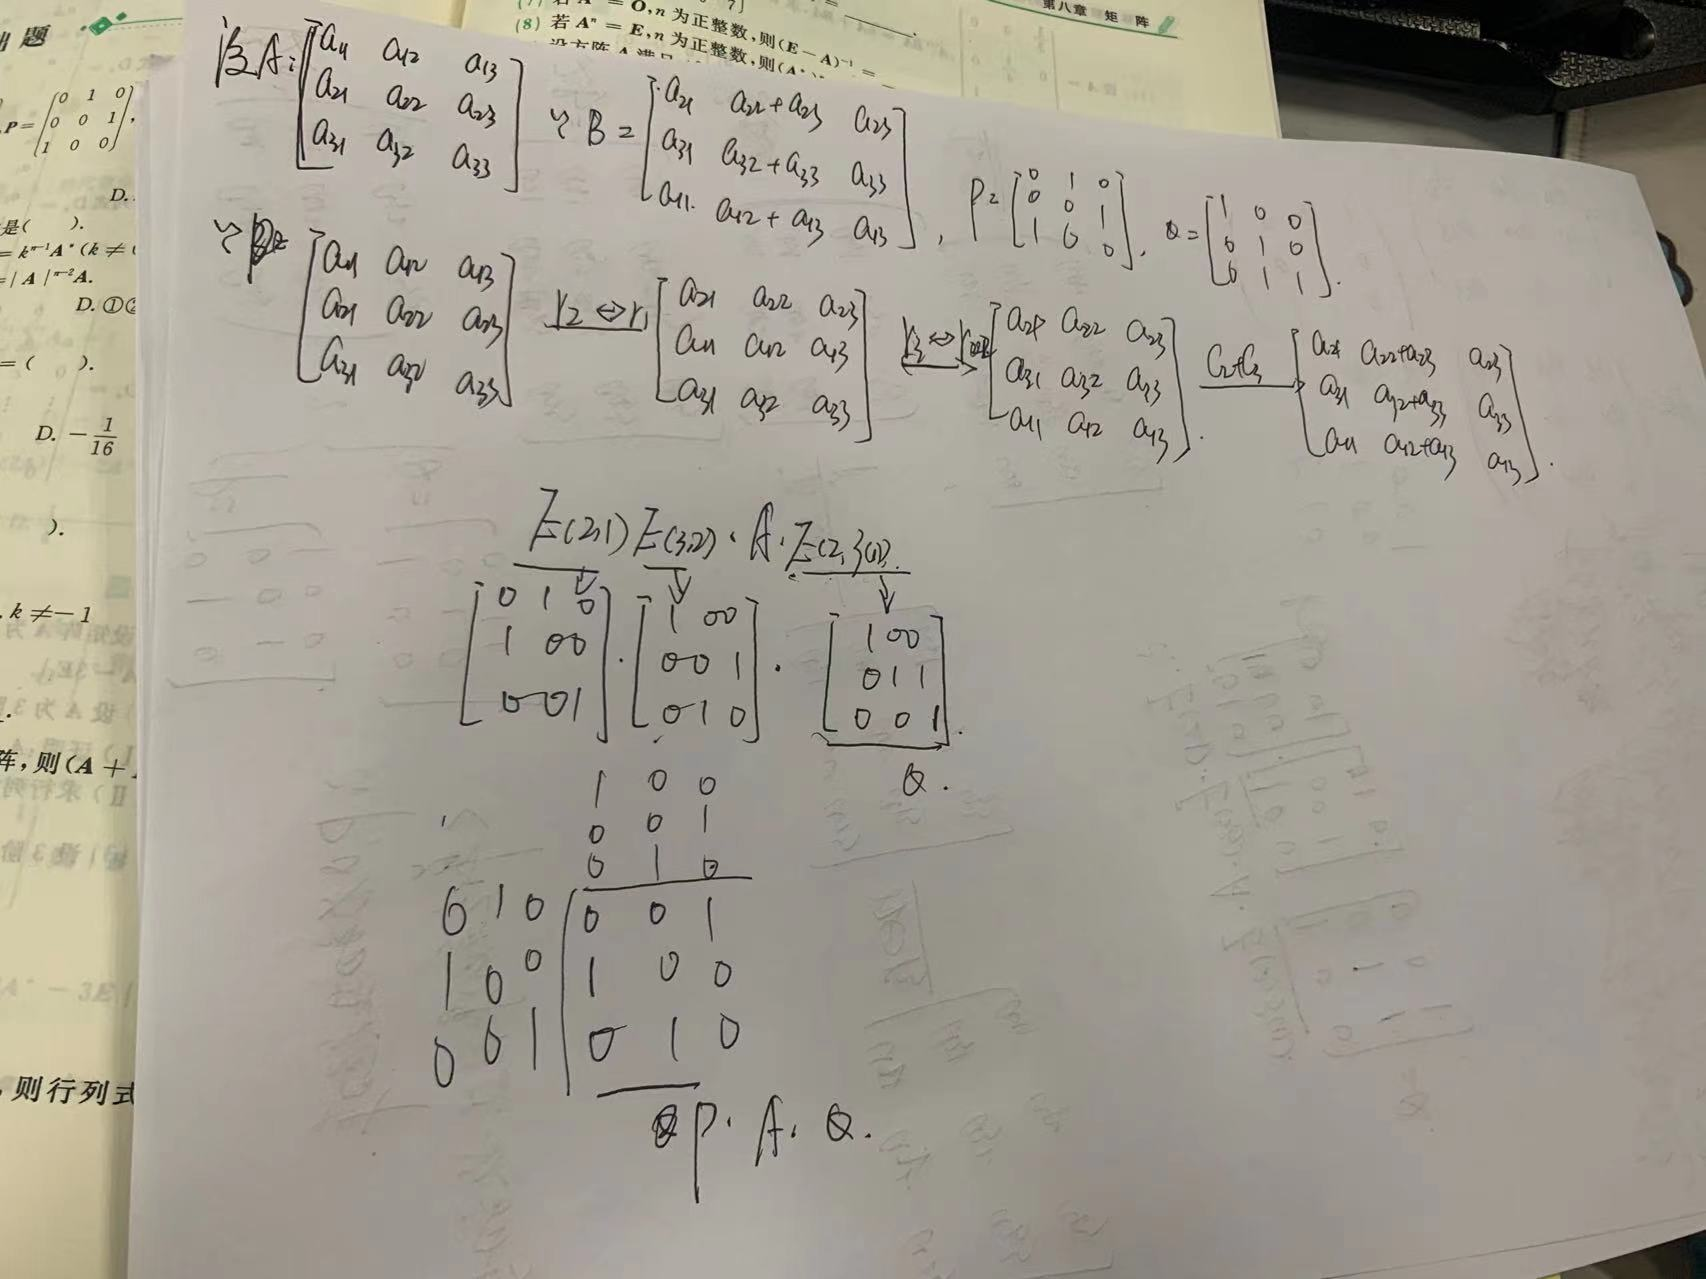 第八章 矩 阵
(8) 若 Aⁿ = E, n 为正整数, 则(E - A)⁻¹ =
P = (0 1 0
0 0 1
1 0 0),
D.
是( ).
= kⁿ⁻¹A* (k ≠
= | A |ⁿ⁻²A.
D. ①②
= ( ).
D. - 1/16
).
, k ≠ - 1
阵, 则(A +
, 则行列式
设A = [a11 a12 a13
a21 a22 a23
a31 a32 a33]
B = [a21 a22+a23 a23
a31 a32+a33 a33
a11 a12+a13 a13],
P = [0 1 0
0 0 1
1 0 0],
Q = [1 0 0
0 1 0
0 1 1].
[a11 a12 a13
a21 a22 a23
a31 a32 a33]
r2 ⇔ r1
[a21 a22 a23
a11 a12 a13
a31 a32 a33]
[a21 a22 a23
a31 a32 a33
a11 a12 a13].
C2+C3
[a21 a22+a23 a23
a31 a32+a33 a33
a11 a12+a13 a13].
E(2,1) E(3,2) · A · E(2,3(1)).
[0 1 0
1 0 0
0 0 1] ·
[1 0 0
0 0 1
0 1 0] ·
[1 0 0
0 1 1
0 0 1].
Q.
1 0 0
0 0 1
0 1 0
0 1 0 0 0 1
1 0 0 1 0 0
0 0 1 0 1 0
P · A · Q.